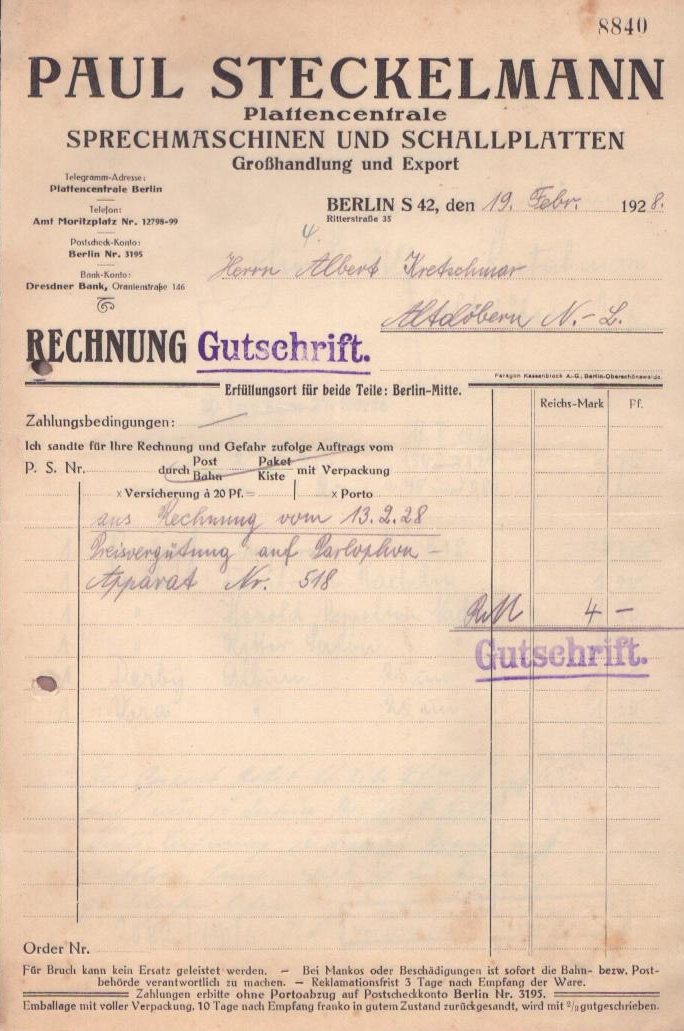 8840
PAUL STECKELMANN
Plattencentrale
SPRECHMASCHINEN UND SCHALLPLATTEN
Großhandlung und Export
Telegramm-Adresse:
Plattencentrale Berlin
Telefon:
Amt Moritzplatz Nr. 12798-99
Postscheck-Konto:
Berlin Nr. 3195
Bank-Konto:
Dresdner Bank, Oranienstraße 146
BERLIN S 42, den 19. Febr. 1928.
Ritterstraße 35
4.
Herrn Albert Kretschmar
Altdöbern N.-L.
RECHNUNG Gutschrift.
Paragon Kassenblock A.-G., Berlin-Oberschöneweide.
Erfüllungsort für beide Teile: Berlin-Mitte.
Zahlungsbedingungen:
Reichs-Mark Pf.
Ich sandte für Ihre Rechnung und Gefahr zufolge Auftrags vom
P. S. Nr. durch Post Bahn Paket Kiste mit Verpackung
x Versicherung à 20 Pf. = x Porto
aus Rechnung vom 13.2.28
Preisvergütung auf Parlophon-
Apparat Nr. 518
RM 4 —
Gutschrift.
Order Nr.
Für Bruch kann kein Ersatz geleistet werden. — Bei Mankos oder Beschädigungen ist sofort die Bahn- bezw. Post-
behörde verantwortlich zu machen. — Reklamationsfrist 3 Tage nach Empfang der Ware.
Zahlungen erbitte ohne Portoabzug auf Postscheckkonto Berlin Nr. 3195.
Emballage mit voller Verpackung, 10 Tage nach Empfang franko in gutem Zustand zurückgesandt, wird mit 2/3 gutgeschrieben.